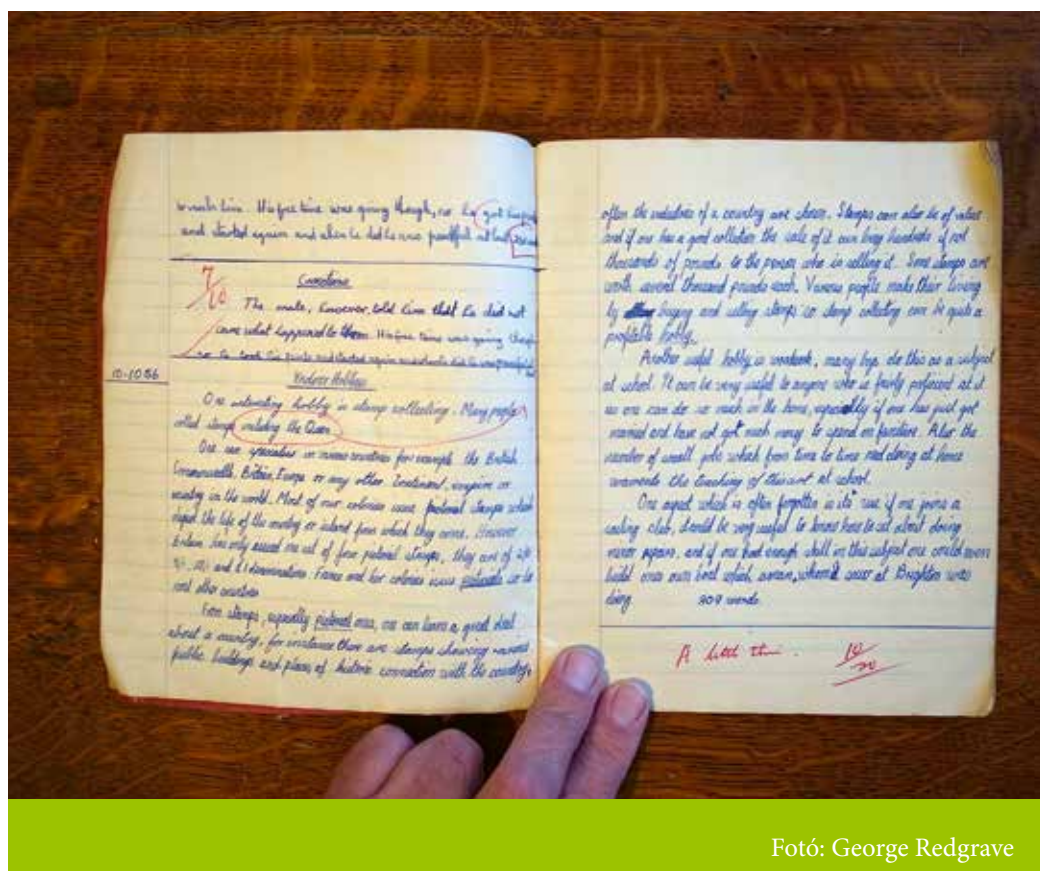 with him. His free time was going though, so he got his
and started again and when he did he was
7/10
Corrections
The mate, however, told him that he did not
care what happened to them. His free time was going though
so he took his and started again and
10-10-56
Indoor Hobbies
One interesting hobby is stamp collecting. Many people
collect stamps including the Queen
One can specialise in various countries for example the British
Commonwealth, Britain, Europe or any other Continent, empire or
country in the world. Most of our colonies issue pictorial stamps which
depict the life of the country or island from which they come. However
Britain has only issued one set of four pictorial stamps, they are of 2/6
5/-, 10/- and £1 denomination. France and her colonies issue pictorials as do
most other countries
From stamps, especially pictorial ones, one can learn a good deal
about a country, for instance there are stamps showing various
public buildings and places of historic connection with the country,
often the industries of a country are shown. Stamps can also be of value
and if one has a good collection the sale of it can bring hundreds if not
thousands of pounds to the person who is selling it. Some stamps are
worth several thousand pounds each. Various people make their living
by buying and selling stamps so stamp collecting can be quite a
profitable hobby.
Another useful hobby is woodwork, many boys do this as a subject
at school. It can be very useful to anyone who is fairly proficient at it
as one can do so much in the home, especially if one has just got
married and have not got much money to spend on furniture. Also the
number of small jobs which from time to time need doing at home
warrants the teaching of this art at school.
One aspect which is often forgotten is its use if one joins a
sailing club, it would be very useful to know how to set about doing
minor repairs, and if one had enough skill in this subject one could even
build ones own boat which a man, whom I saw at Brighton was
doing. 209 words.
A little thin. 14/20
Fotó: George Redgrave